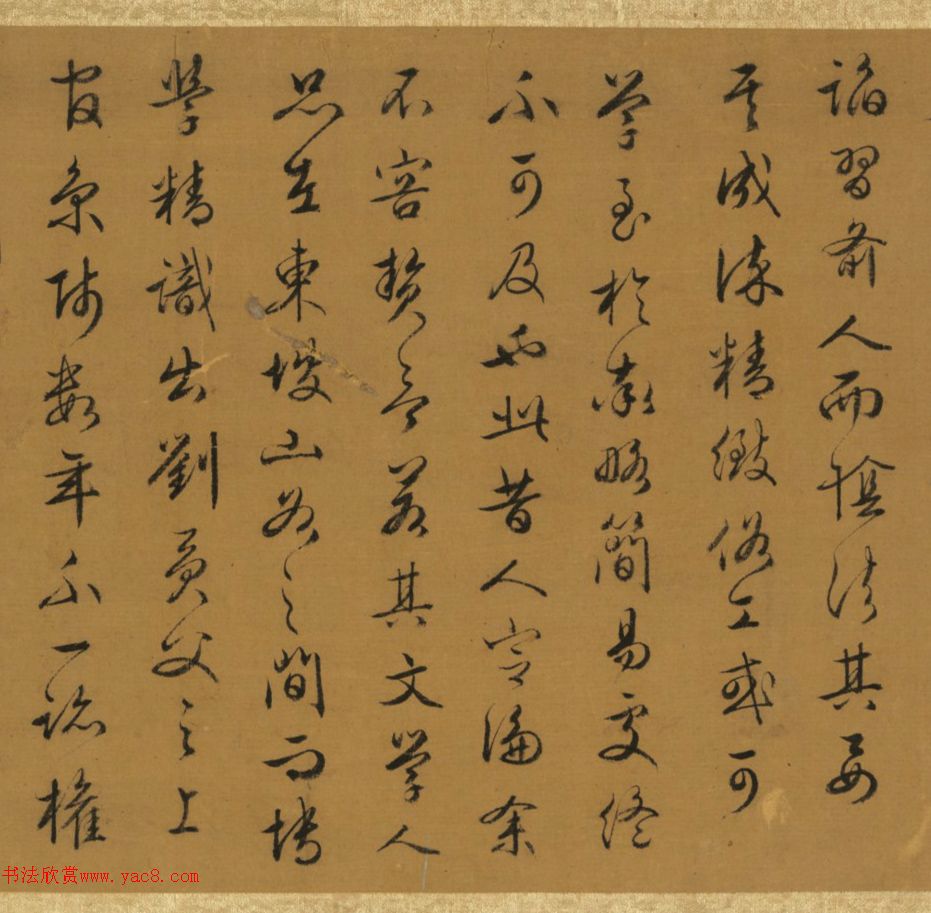 謟習前人而陰法其要
其成染精緻俗工或可
學至於率略簡易處終
不可及也此昔人定論余
不容贅言若其文學人
品在東坡山谷之間而博
學精識出劉貢父之上
官京師數年不一詣權
书法欣赏www.yac8.com